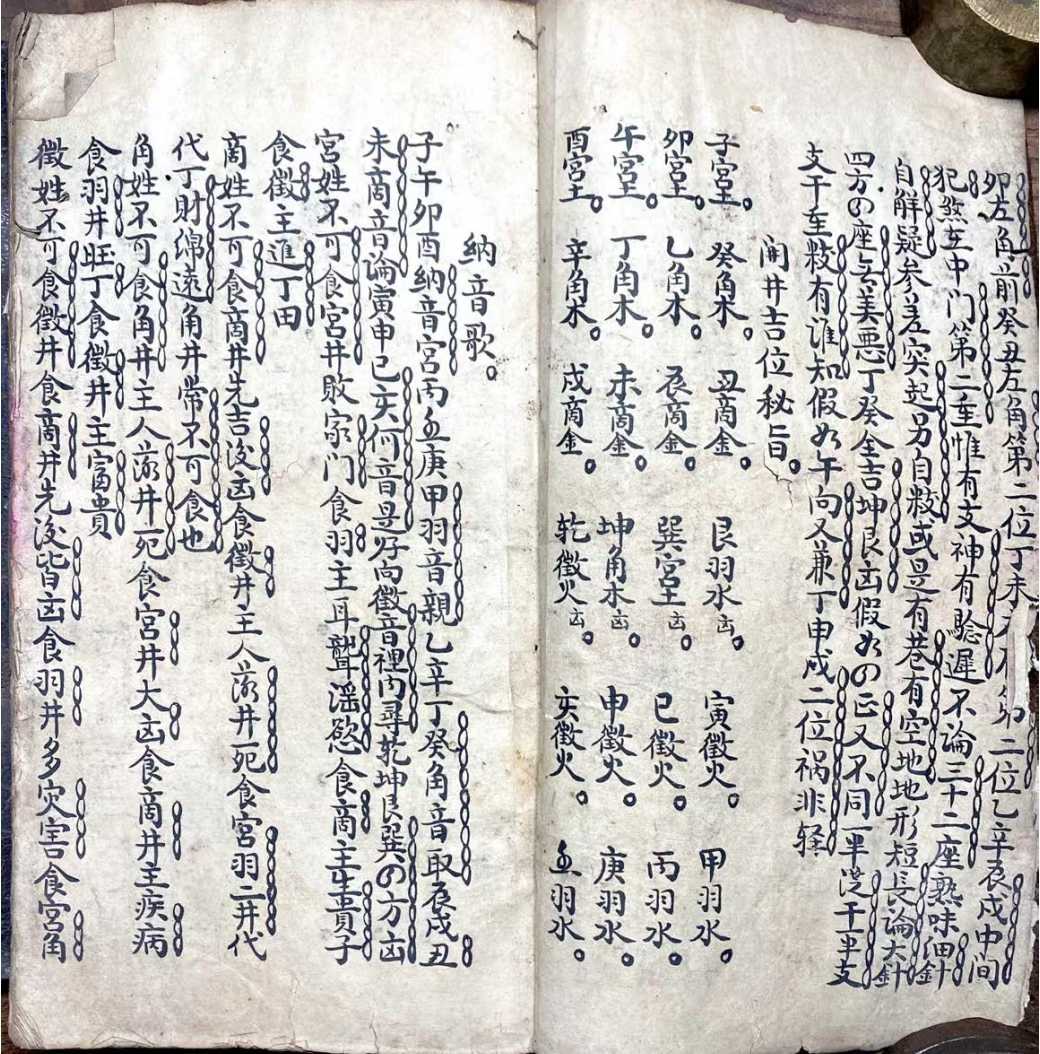 卯左角前癸丑左角第二位丁未 卯二位乙辛辰戌中间
犯煞在中门第二重惟有支神有驗遲不論三十二座熟味細針
自解疑参差突起另自敉或是有巷有空地地形短長論大針
四方の座 美悪丁癸全吉坤艮凶假如の正又不同一半 干半支
支干至敉有谁知假如午向又兼丁申戌二位祸非轻
開井吉位秘旨。
子宮土。 癸角木。 丑商金。 艮羽水凶。 寅徵火。 甲羽水。
卯宮土。 乙角木。 辰商金。 巽宮土凶。 巳徵火。 丙羽水。
午宮土。 丁角木。 未商金。 坤角木凶。 申徵火。 庚羽水。
酉宮土。 辛角木。 戌商金。 乾徵火凶。 亥徵火。 壬羽水。
納音歌。
子午卯酉納音宮丙壬庚甲羽音親乙辛丁癸角音取辰戌丑
未商音論寅申巳亥何音是好向徵音裡内尋乾坤艮巽の方凶
宮姓不可食宮井敗家门食羽主耳聾淫慾食商主生貴子
食徵主進丁田
商姓不可食商井先吉後凶食徵井主人落井死食宮羽二井代
代丁財綿遠角井常不可食也
角姓不可食角井主人落井死食宮井大凶食商井主疾病
食羽井旺丁食徵井主富貴
徵姓不可食徵井食商井先後皆凶食羽井多灾害食宮角